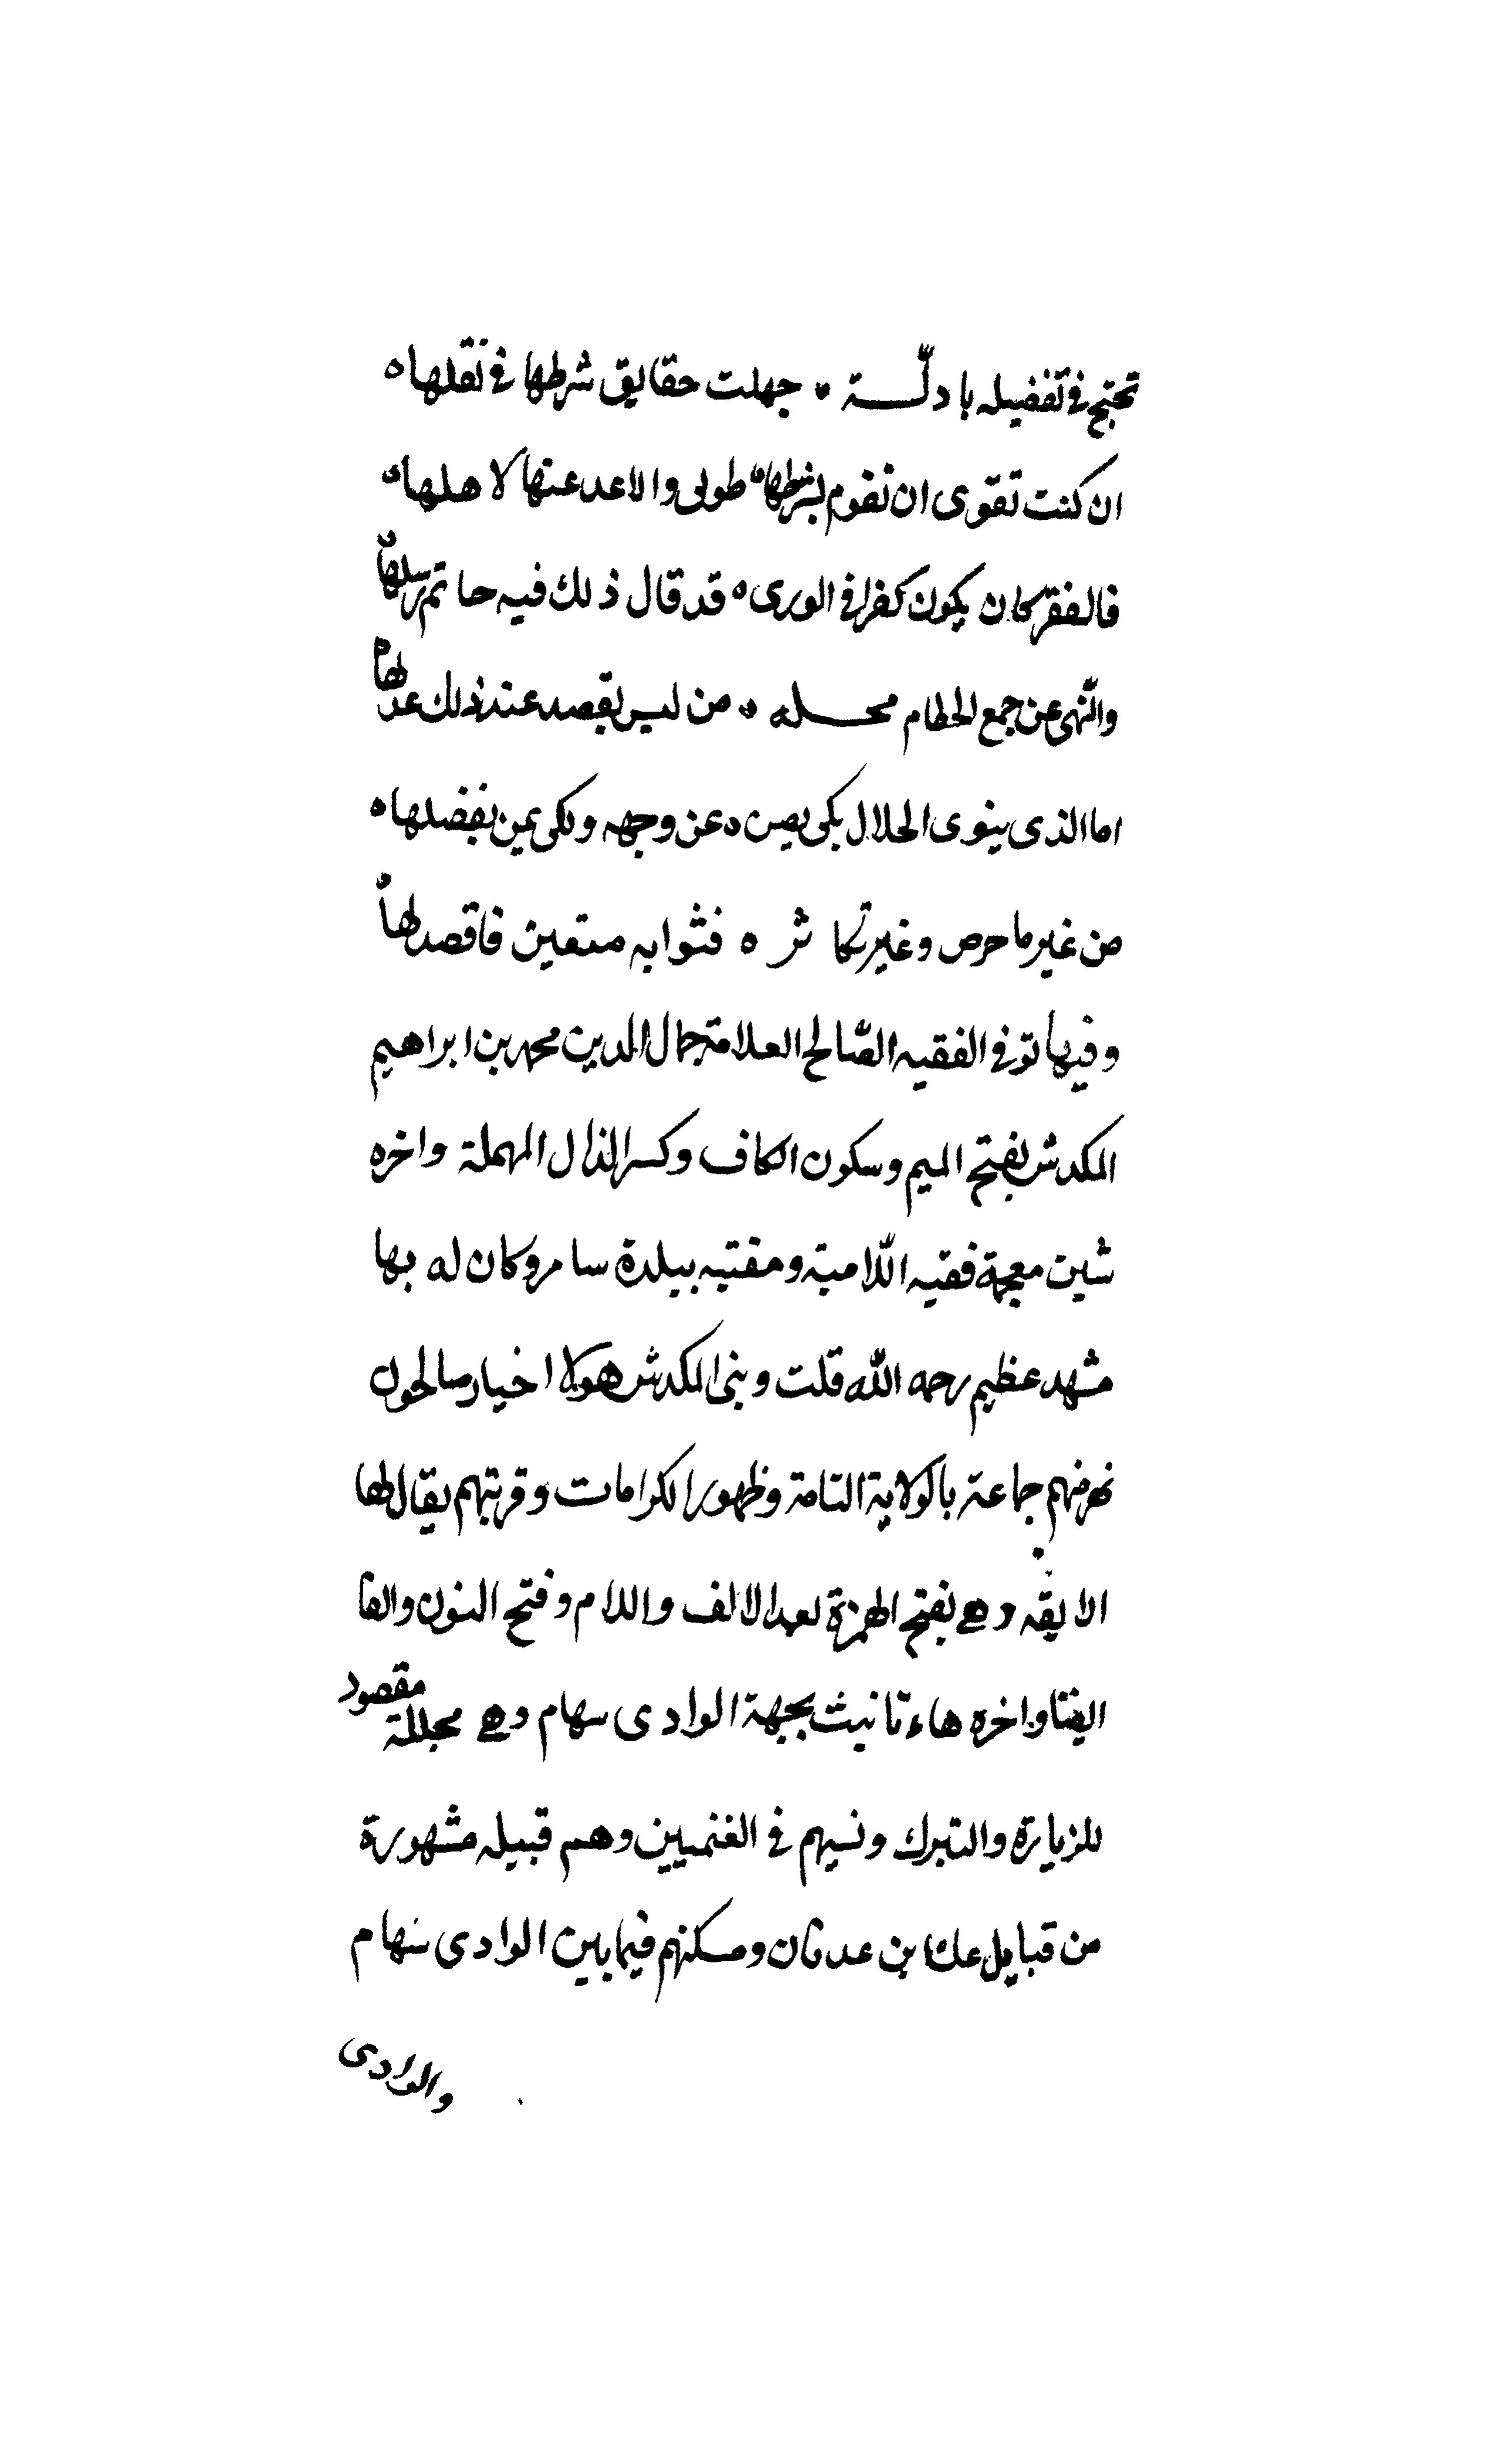 تحتج في تفضيله بادلّة * جهلت حقايق شرطها في نقلها ه
ان كنت تقوى ان تقوم بشرطها ه طوبى والا عد عنها لاهلها ه
فالفقر كان يكون كفرا في الورى ه قد قال ذلك فيه حاتم رسلها ه
والنّهى عن جمع الحطام محله * من ليس يقصد عند ذلك عدلها ه
اما الذى ينوى الحلال بكى يصن ه عن وجهه ولكى يمن بفضلها ه
من غير ما حرص وغير تكاثر ه فثوابه متقين فاقصد لها ه
وفيها توفى الفقيه الصّالح العلامة جمال الدين محمد بن ابراهيم
المكدش بفتح الميم وسكون الكاف وكسر الذال المهملة واخره
شين معجمة فقيه اللّامية ومفتيه ببلدة سامر وكان له بها
مشهد عظيم رحمه اللّه قلت وبنى المكدش هولا اخيار صالحون
جماعة بالولاية التامة وظهور الكرامات وقريتهم يقال لها
الانفه وهي بفتح الهمزة بعد الالف واللام وفتح النون والفا
ايضا واخره هاء تانيث بجهة الوادى سهام وهي محللة مقصود
للزيارة والتبرك ونسبهم في الغنميين وهم قبيله مشهورة
من قبايل عك ابن عدنان ومسكنهم فيما بين الوادى سهام
والوادى